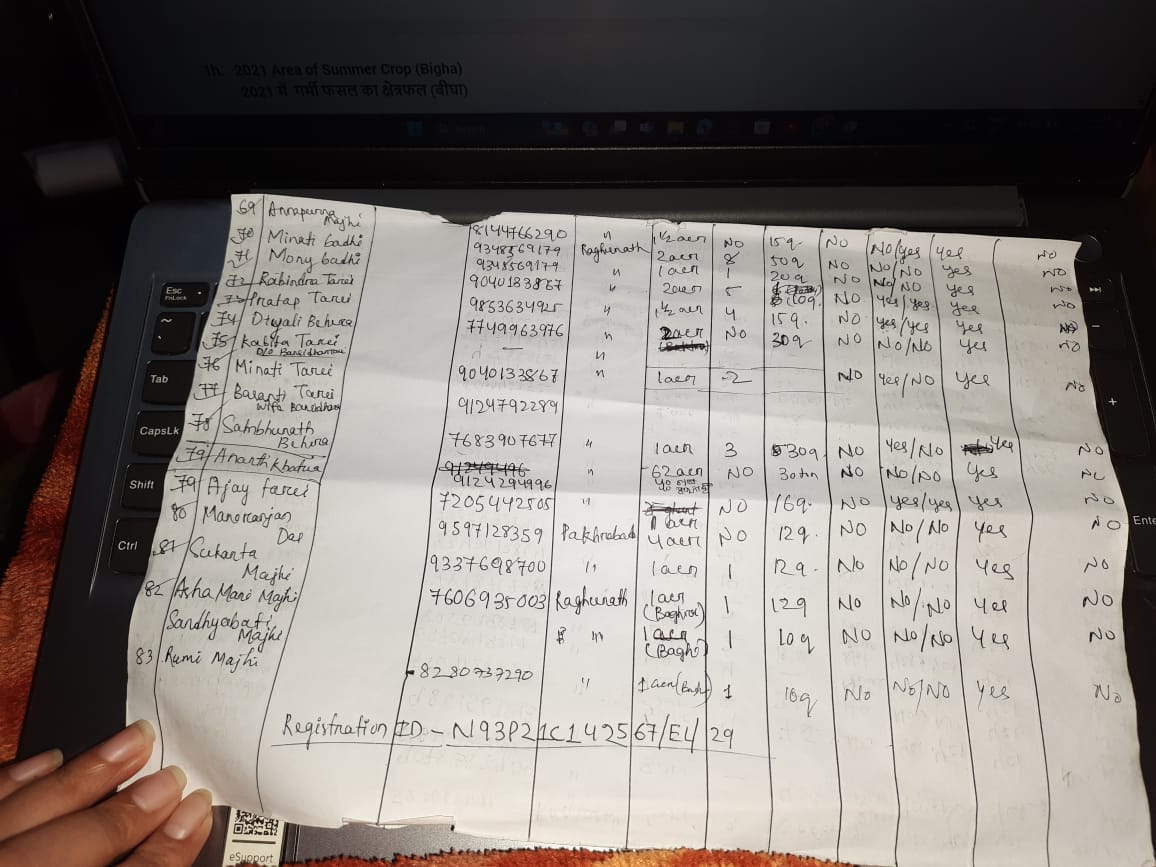 1h: 2021 Area of Summer Crop (Bigha)
2021 में गर्मी फसल का क्षेत्रफल (बीघा)
69 Annapurna Majhi 8144766290 " 1½ acr NO 15q NO No/yes yes NO
70 Minati badhi 9348569179 Raghunath 2acr 8 50q NO No/No yes NO
71 Mony badhi 9348569179 " 1acr 1 20q NO No/NO yes NO
72 Rabindra Tarei 9040183867 " 2acr 5 110q. NO yes/yes yes NO
73 Pratap Tarei 9853634925 " 1½ acr 4 15q. NO yes/yes yes NO
74 Dtyali Behura 7749963976 " 2acr NO 30q NO No/No yes NO
75 Kabita Tarei — "
D/o
76 Minati Tarei 9040133867 " 1acr 2 NO yes/NO yes NO
77 Basanti Tarei 9124792289 "
wife
78 Sambhunath Behura 7683907677 " 1acr 3 30q NO yes/NO yes NO
79 Anarti Khatua 9124294996 " 62acr NO NO No/NO yes
79 Ajay tarei 7205442505 " NO 16q. NO yes/yes yes NO
80 Manoranjan Das 9597128359 Pakhrabad 4acr NO 12q. NO No/No yes NO
81 Sukanta Majhi 9337698700 " 1acr 1 12q. NO No/NO yes NO
82 Asha Mani Majhi 7606935003 Raghunath 1acr 1 12q NO No/No yes NO
Sandhyabati Majhi " 1acr (Baghi) 1 10q NO No/No yes NO
83. Rumi Majhi 8280737290 " 1acr 1 10q No No/NO yes No
Registration ID - N93P21C142567/EL/29
Esc
FnLock
~
Tab
CapsLk
Shift
Ctrl
+
Ente
eSupport